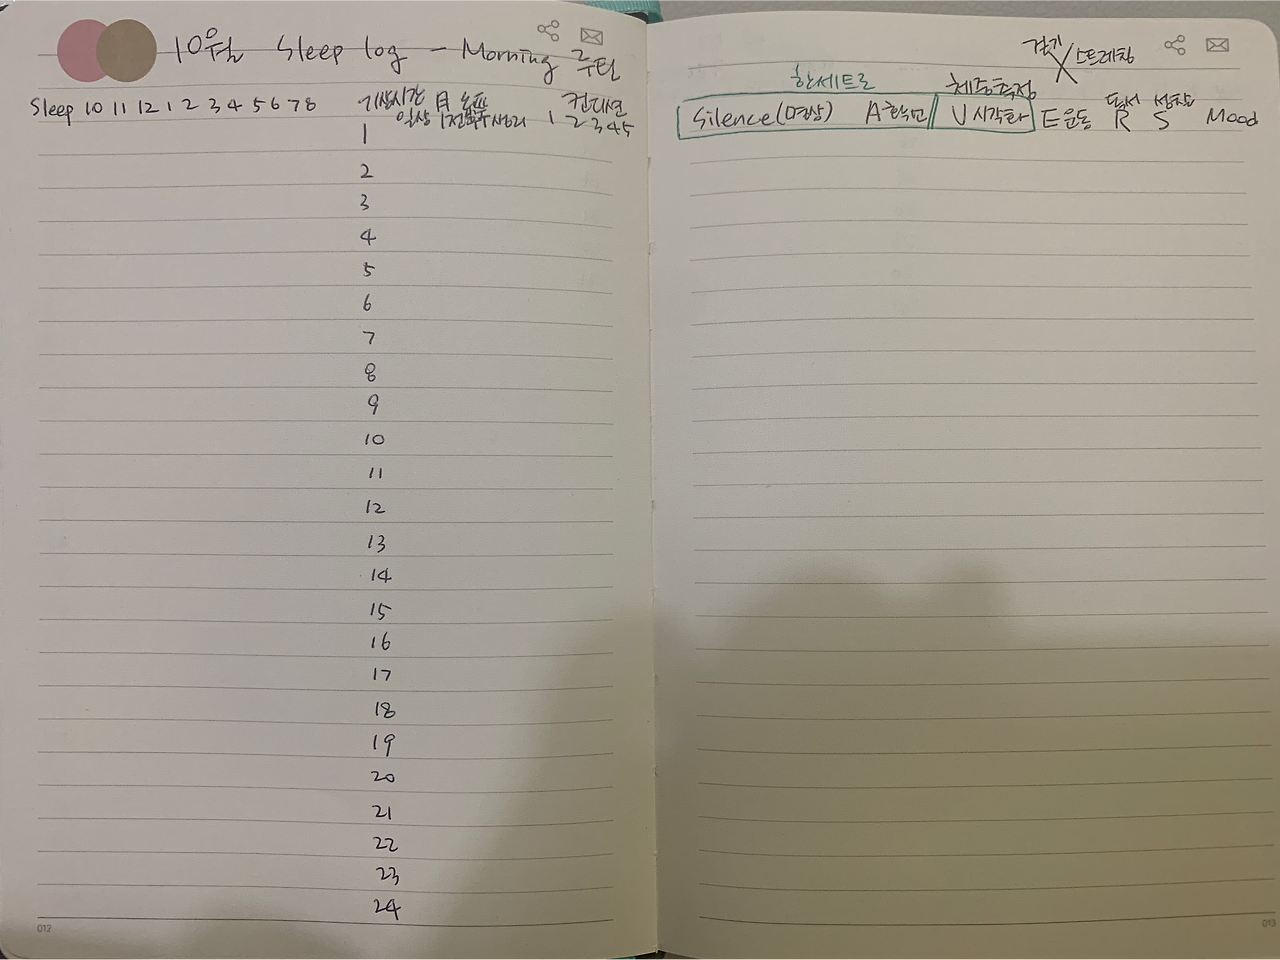 10월 Sleep log - Morning 루틴
Sleep 10 11 12 1 2 3 4 5 6 7 8 기상시간 컨디션
1 2 3 4 5
1
2
3
4
5
6
7
8
9
10
11
12
13
14
15
16
17
18
19
20
21
22
23
24
012
걷기/스트레칭
한세트로 체중측정
독서 성장
Silence(명상) A확언 V시각화 E운동 R S Mood
013